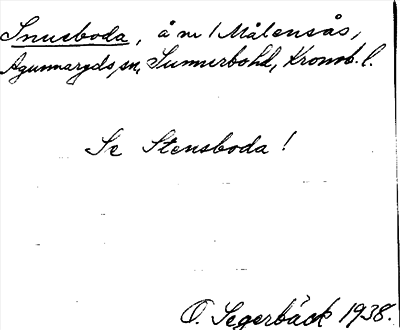 Snueboda, å nr 1 Målensås,
Agunnaryds sn, Sunnerbohd, Kronob. l.
Se Stensboda!
O. Segerbäck 1938.